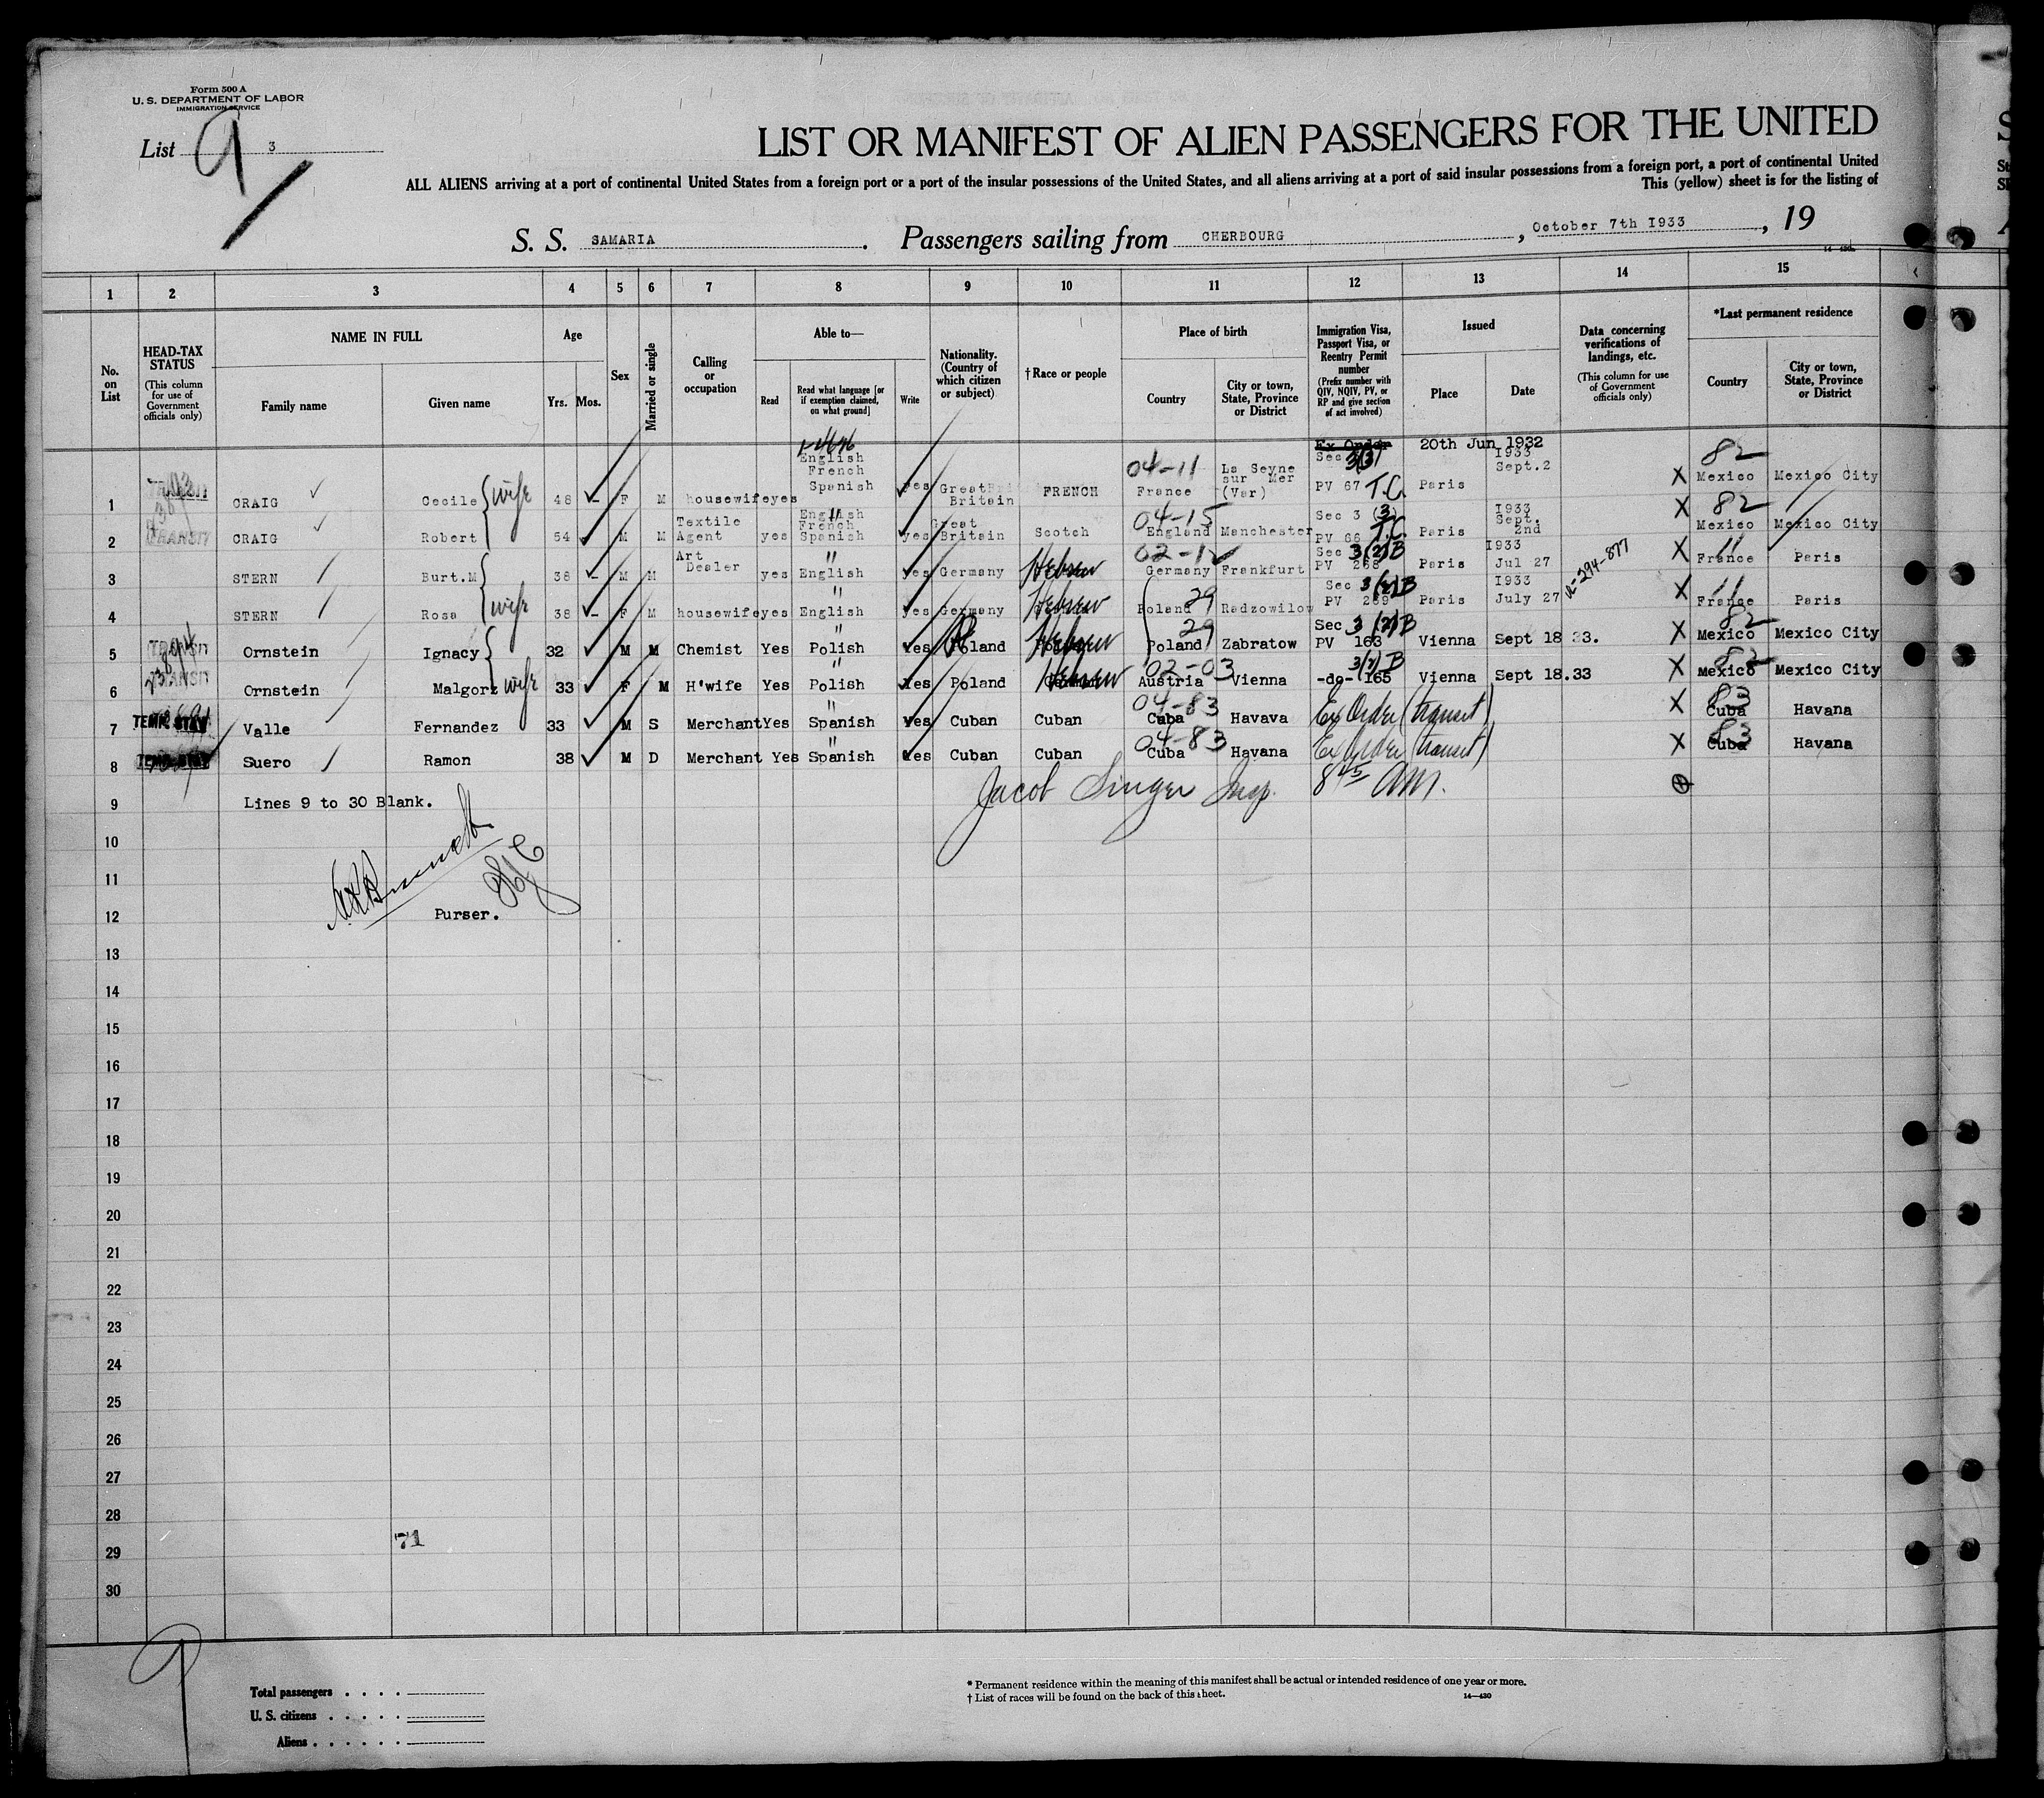 Form 500 A
U. S. DEPARTMENT OF LABOR
IMMIGRATION SERVICE
List 9 3
LIST OR MANIFEST OF ALIEN PASSENGERS FOR THE UNITED
ALL ALIENS arriving at a port of continental United States from a foreign port or a port of the insular possessions of the United States, and all aliens arriving at a port of said insular possessions from a foreign port, a port of continental United
This (yellow) sheet is for the listing of
S. S. SAMARIA . Passengers sailing from CHERBOURG , October 7th 1933 , 19
1 2 3 4 5 6 7 8 9 10 11 12 13 14 15
No. on List
HEAD-TAX STATUS
(This column for use of Government officials only)
NAME IN FULL
Family name Given name
Age
Yrs. Mos.
Sex
Married or single
Calling or occupation
Able to—
Read
Read what language [or if exemption claimed, on what ground]
Write
Nationality. (Country of which citizen or subject)
† Race or people
Place of birth
Country
City or town, State, Province or District
Immigration Visa, Passport Visa, or Reentry Permit number
(Prefix number with QIV, NQIV, PV, or RP and give section of act involved)
Issued
Place Date
Data concerning verifications of landings, etc.
(This column for use of Government officials only)
*Last permanent residence
Country
City or town, State, Province or District
Ex Order 20th Jun 1932
1 TRANSIT CRAIG Cecile wife 48 F M housewife yes English French Spanish yes Great Britain FRENCH 04-11 France La Seyne sur Mer (Var) Sec 3(3) PV 67 T.C. Paris 1933 Sept.2 X 82 Mexico Mexico City
2 TRANSIT CRAIG Robert 54 M M Textile Agent yes English French Spanish yes Great Britain Scotch 04-15 England Manchester Sec 3 (3) PV 66 T.C. Paris 1933 Sept. 2nd X 82 Mexico Mexico City
3 STERN Burt.M 38 M M Art Dealer yes English yes Germany Hebrew 02-1 Germany Frankfurt Sec 3(2)B PV 268 Paris 1933 Jul 27 X 11 France Paris
4 STERN Rosa wife 38 F M housewife yes English yes Germany Hebrew 29 Poland Radzowilow Sec 3(2)B PV 269 Paris 1933 July 27 X 11 France Paris
5 TRANSIT Ornstein Ignacy 32 M M Chemist Yes Polish Yes Poland Hebrew 29 Poland Zabratow Sec 3(2)B PV 163 Vienna Sept 18 33. X 82 Mexico Mexico City
6 TRANSIT Ornstein Malgorz wife 33 F M H'wife Yes Polish Yes Poland Hebrew 02-03 Austria Vienna 3(2)B -do- 165 Vienna Sept 18.33 X 82 Mexico Mexico City
7 TEMP. STAY Valle Fernandez 33 M S Merchant Yes Spanish Yes Cuban Cuban 04-83 Cuba Havava Ex Order (transit) X 83 Cuba Havana
8 TEMP. STAY Suero Ramon 38 M D Merchant Yes Spanish Yes Cuban Cuban 04-83 Cuba Havana Ex Order (transit) X 83 Cuba Havana
9 Lines 9 to 30 Blank. Jacob Singer Insp. 8 45 AM.
10
11
12 Purser.
13
14
15
16
17
18
19
20
21
22
23
24
25
26
27
28
71
29
30
9
Total passengers
U. S. citizens
Aliens
* Permanent residence within the meaning of this manifest shall be actual or intended residence of one year or more.
† List of races will be found on the back of this sheet.
14—430